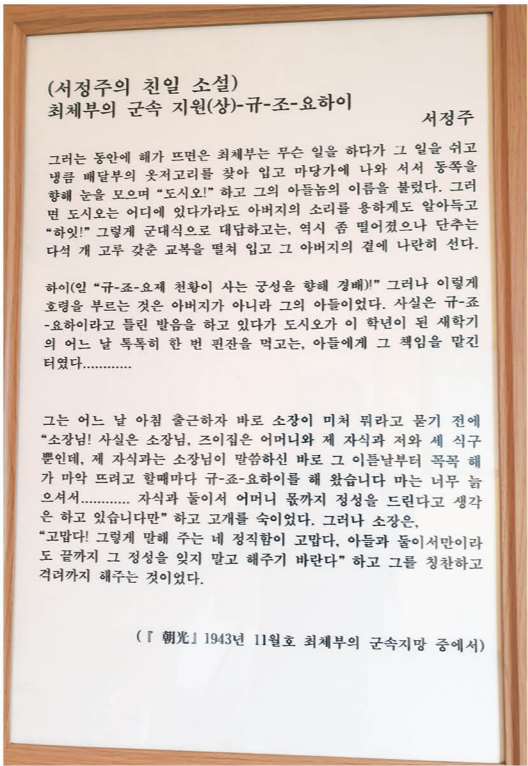 (서정주의 친일 소설)
최체부의 군속 지원(상)-규-조-요하이
서정주
그러는 동안에 해가 뜨면은 최체부는 무슨 일을 하다가 그 일을 쉬고
냉큼 배달부의 옷저고리를 찾아 입고 마당가에 나와 서서 동쪽을
향해 눈을 모으며 “도시오!” 하고 그의 아들놈의 이름을 불렀다. 그러
면 도시오는 어디에 있다가라도 아버지의 소리를 용하게도 알아듣고
“하잇!” 그렇게 군대식으로 대답하고는, 역시 좀 떨어졌으나 단추는
다섯 개 고루 갖춘 교복을 떨쳐 입고 그 아버지의 곁에 나란히 선다.
하이(인 “규-죠-요제 천황이 사는 궁성을 향해 경배)!” 그러나 이렇게
호령을 부르는 것은 아버지가 아니라 그의 아들이었다. 사실은 규-죠
-요하이라고 틀린 발음을 하고 있다가 도시오가 이 학년이 된 새학기
의 어느 날 톡톡히 한 번 핀잔을 먹고는, 아들에게 그 책임을 맡긴
터였다............
그는 어느 날 아침 출근하자 바로 소장이 미처 뭐라고 묻기 전에
“소장님! 사실은 소장님, 즈이집은 어머니와 제 자식과 저와 세 식구
뿐인데, 제 자식과는 소장님이 말씀하신 바로 그 이튿날부터 꼭꼭 해
가 마악 뜨려고 할때마다 규-죠-요하이를 해 왔습니다 마는 너무 늙
으셔서............ 자식과 둘이서 어머니 몫까지 정성을 드린다고 생각
은 하고 있습니다만” 하고 고개를 숙이었다. 그러나 소장은,
“고맙다! 그렇게 말해 주는 네 정직함이 고맙다, 아들과 둘이서만이라
도 끝까지 그 정성을 잊지 말고 해주기 바란다” 하고 그를 칭찬하고
격려까지 해주는 것이었다.
(『 朝光』1943년 11월호 최체부의 군속지망 중에서)